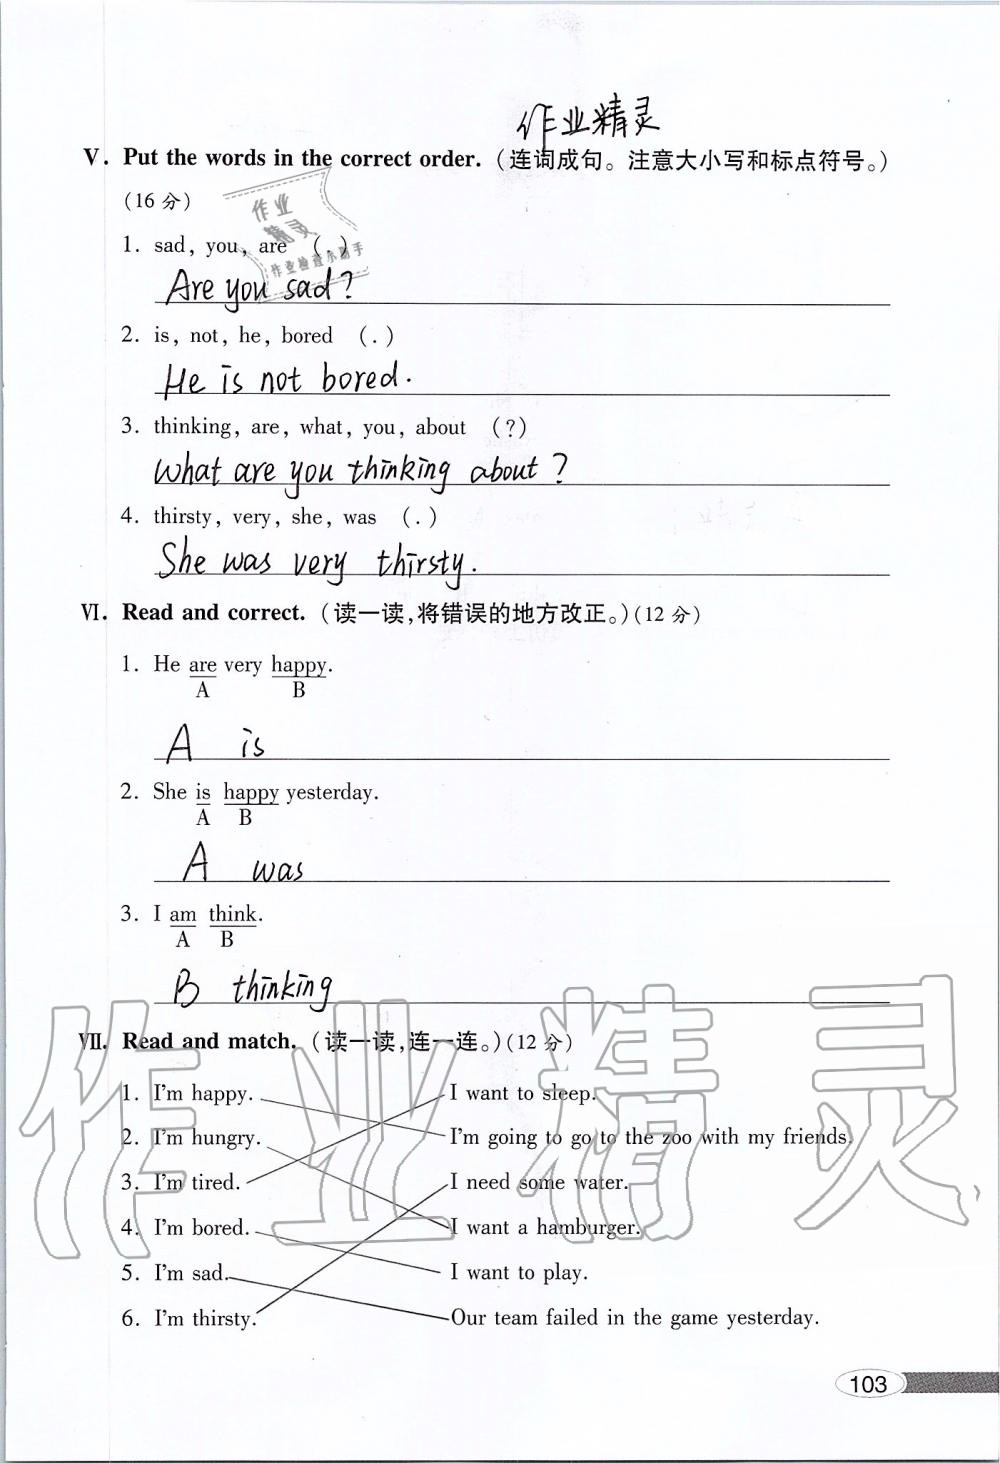 作业精灵
Ⅴ. Put the words in the correct order. (连词成句。注意大小写和标点符号。)
(16 分)
作业
精灵
作业检查小助手
1. sad, you, are (.)
Are you sad?
2. is, not, he, bored (.)
He is not bored.
3. thinking, are, what, you, about (?)
What are you thinking about?
4. thirsty, very, she, was (.)
She was very thirsty.
Ⅵ. Read and correct. (读一读,将错误的地方改正。)(12 分)
1. He are very happy.
A B
A is
2. She is happy yesterday.
A B
A was
3. I am think.
A B
B thinking
Ⅶ. Read and match. (读一读,连一连。)(12 分)
1. I'm happy. I want to sleep.
2. I'm hungry. I'm going to go to the zoo with my friends.
3. I'm tired. I need some water.
4. I'm bored. I want a hamburger.
5. I'm sad. I want to play.
6. I'm thirsty. Our team failed in the game yesterday.
作业精灵
103